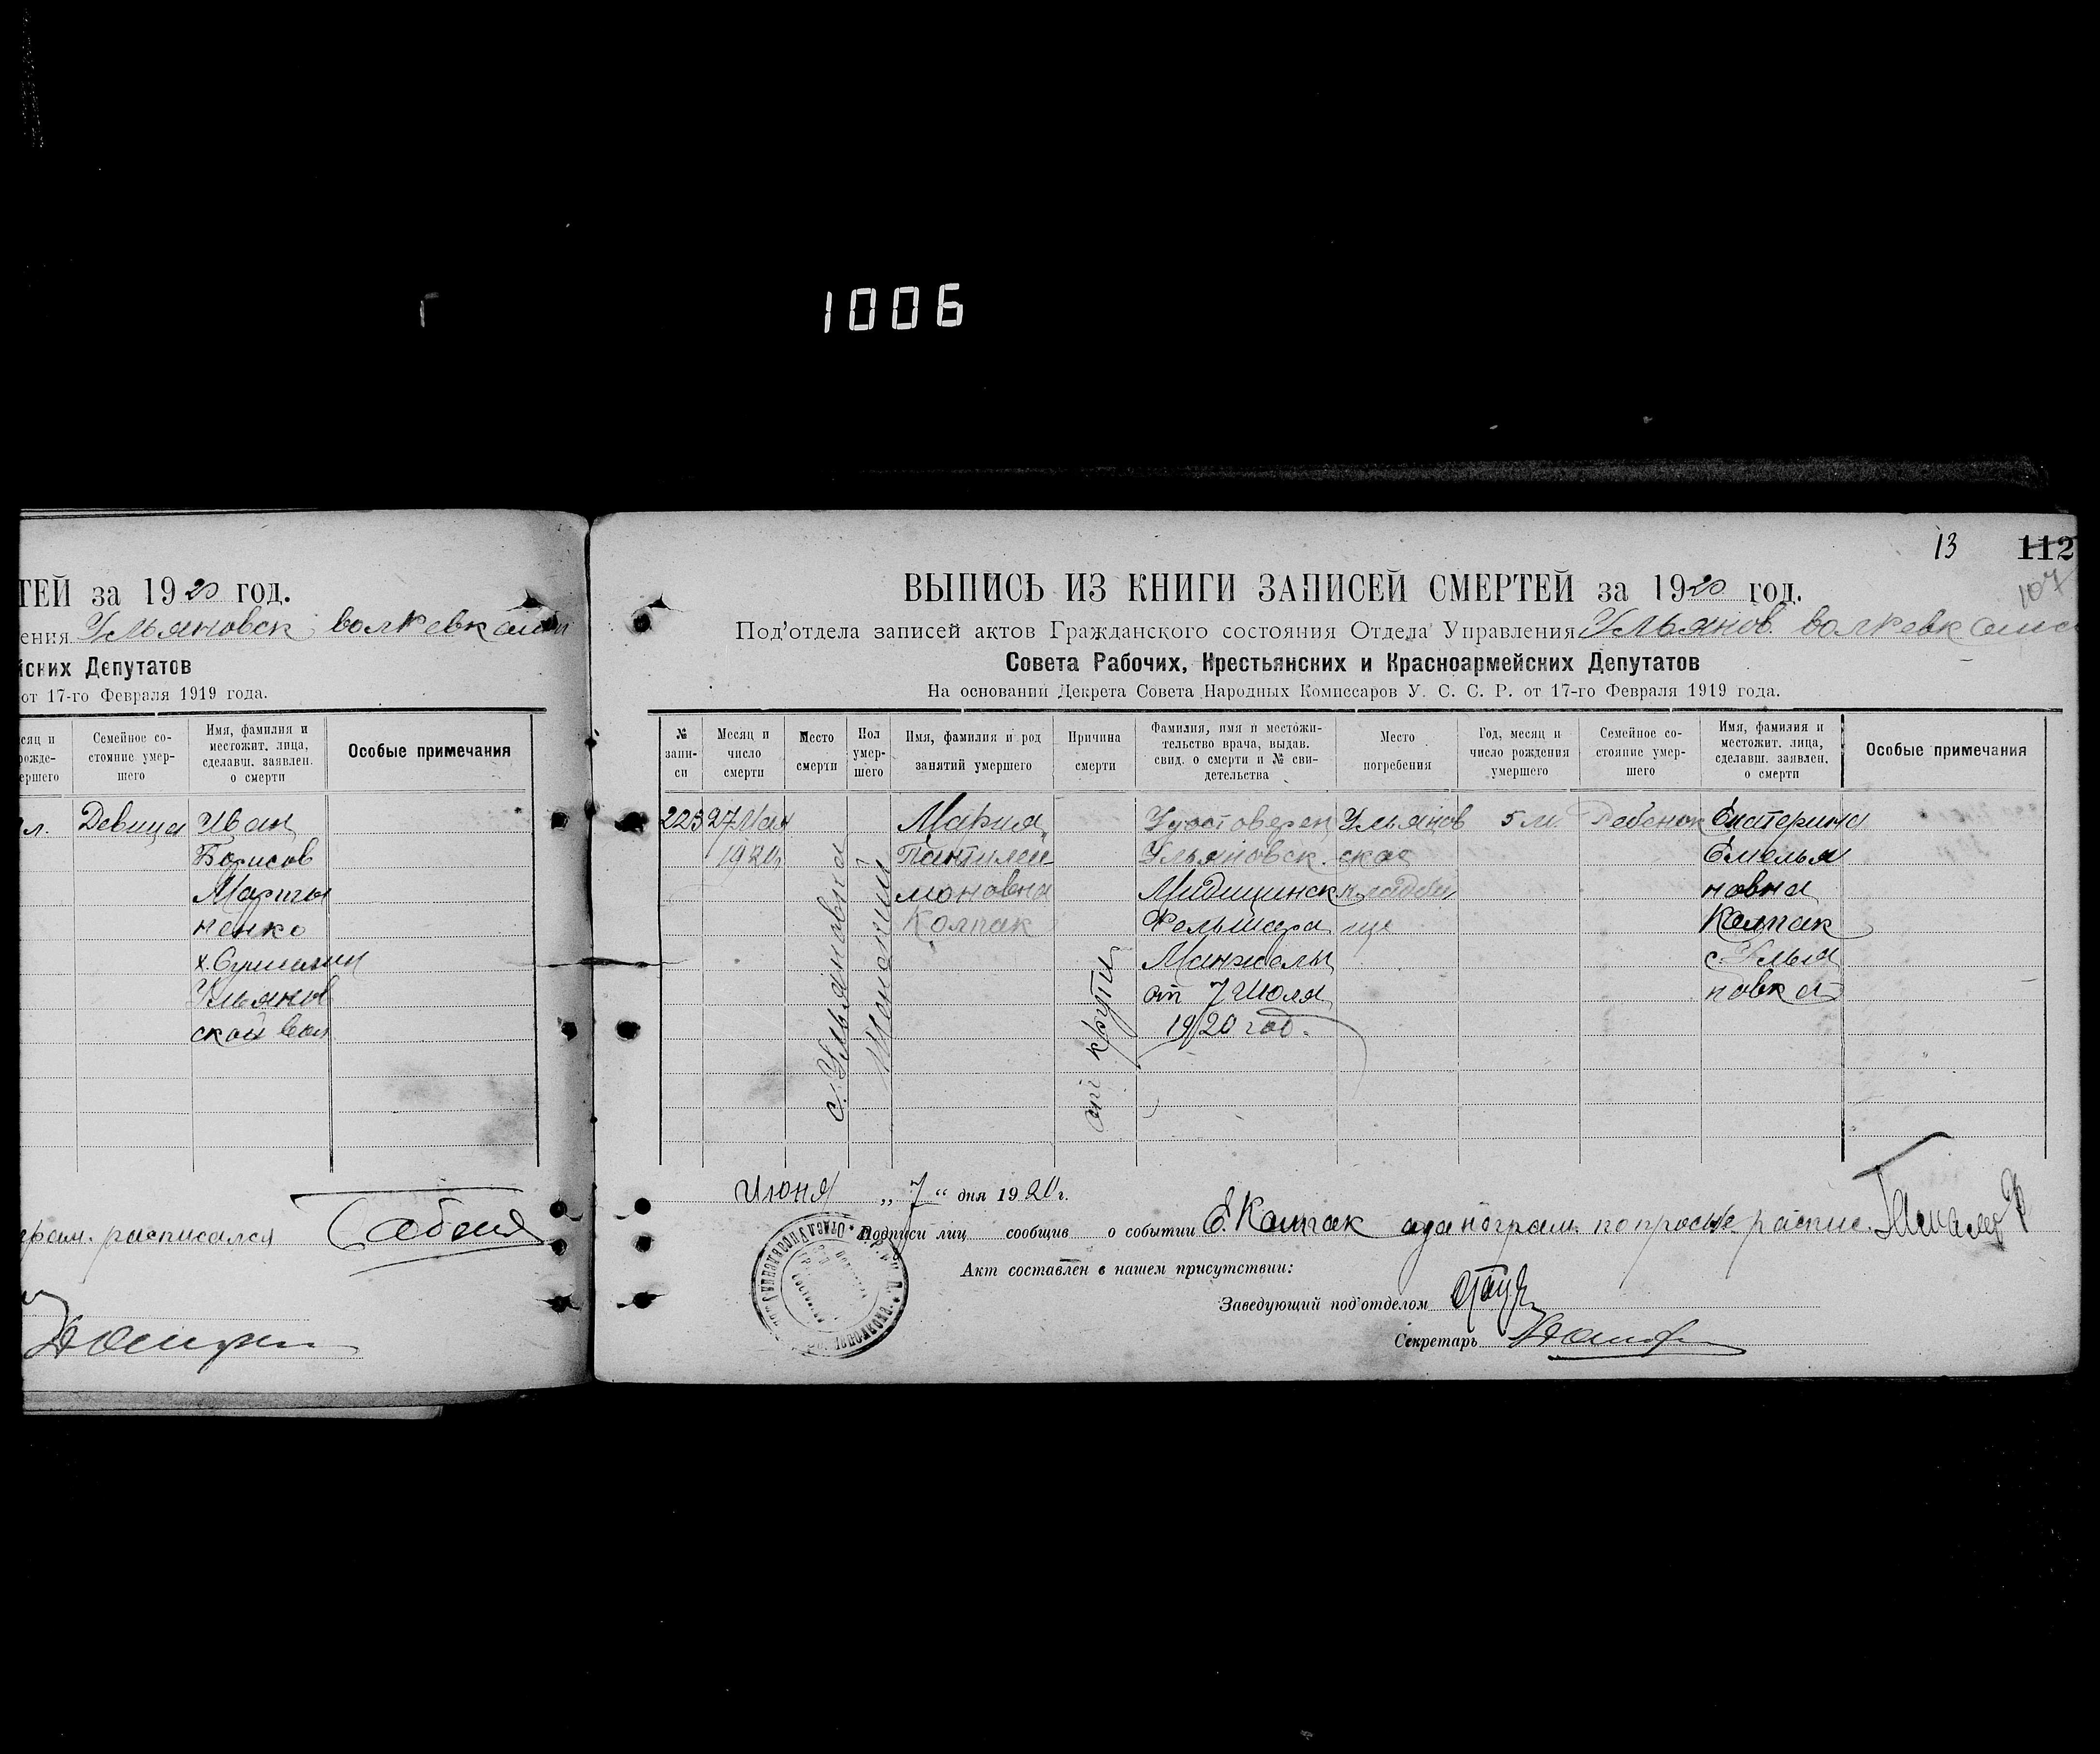 1006
ТЕЙ за 1920 год.
ения Ульяновск волревком
йских Депутатов
от 17-го Февраля 1919 года.
сяц и
рожде-
ершего
Семейное со-
стояние умер-
шего
Имя, фамилия и
местожит. лица,
сделавш. заявлен.
о смерти
Особые примечания
л.
Девица
Иван
Борисов
Марты
ненко
Ульянов
ской вол
грам. расписался
13
112
107
ВЫПИСЬ ИЗ КНИГИ ЗАПИСЕЙ СМЕРТЕЙ за 1920 год.
Под'отдела записей актов Гражданского состояния Отдела Управления Ульянов. волревком
Совета Рабочих, Крестьянских и Красноармейских Депутатов
На основании Декрета Совета Народных Комиссаров У. С. С. Р. от 17-го Февраля 1919 года.
№
запи-
си
Месяц и
число
смерти
Место
смерти
Пол
умер-
шего
Имя, фамилия и род
занятий умершего
Причина
смерти
Фамилия, имя и местожи-
тельство врача, выдав.
свид. о смерти и № сви-
детельства
Место
погребения
Год, месяц и
число рождения
умершего
Семейное со-
стояние умер-
шего
Имя, фамилия и
местожит. лица,
сделавш. заявлен.
о смерти
Особые примечания
223
27 Мая
1920
с. Ульяновка
Женский
Мария
Пантилей
моновна
Колпак
от крупи
Удостоверен
Ульяновск.
Мидицинск
Фельшера
Манжолы
от 7 Июля
1920 год.
Ульянов
ское
кладби
ще
5 м.
Ребенок
Екатерина
Емелья
новна
Колпак
с. Улья
новка
Июня „ 7 “ дня 1920 г.
Подписи лиц сообщив о событии Е. Колпак а за нограм. по просьбе распис.
Акт составлен в нашем присутствии:
Заведующий под'отделом
Секретарь